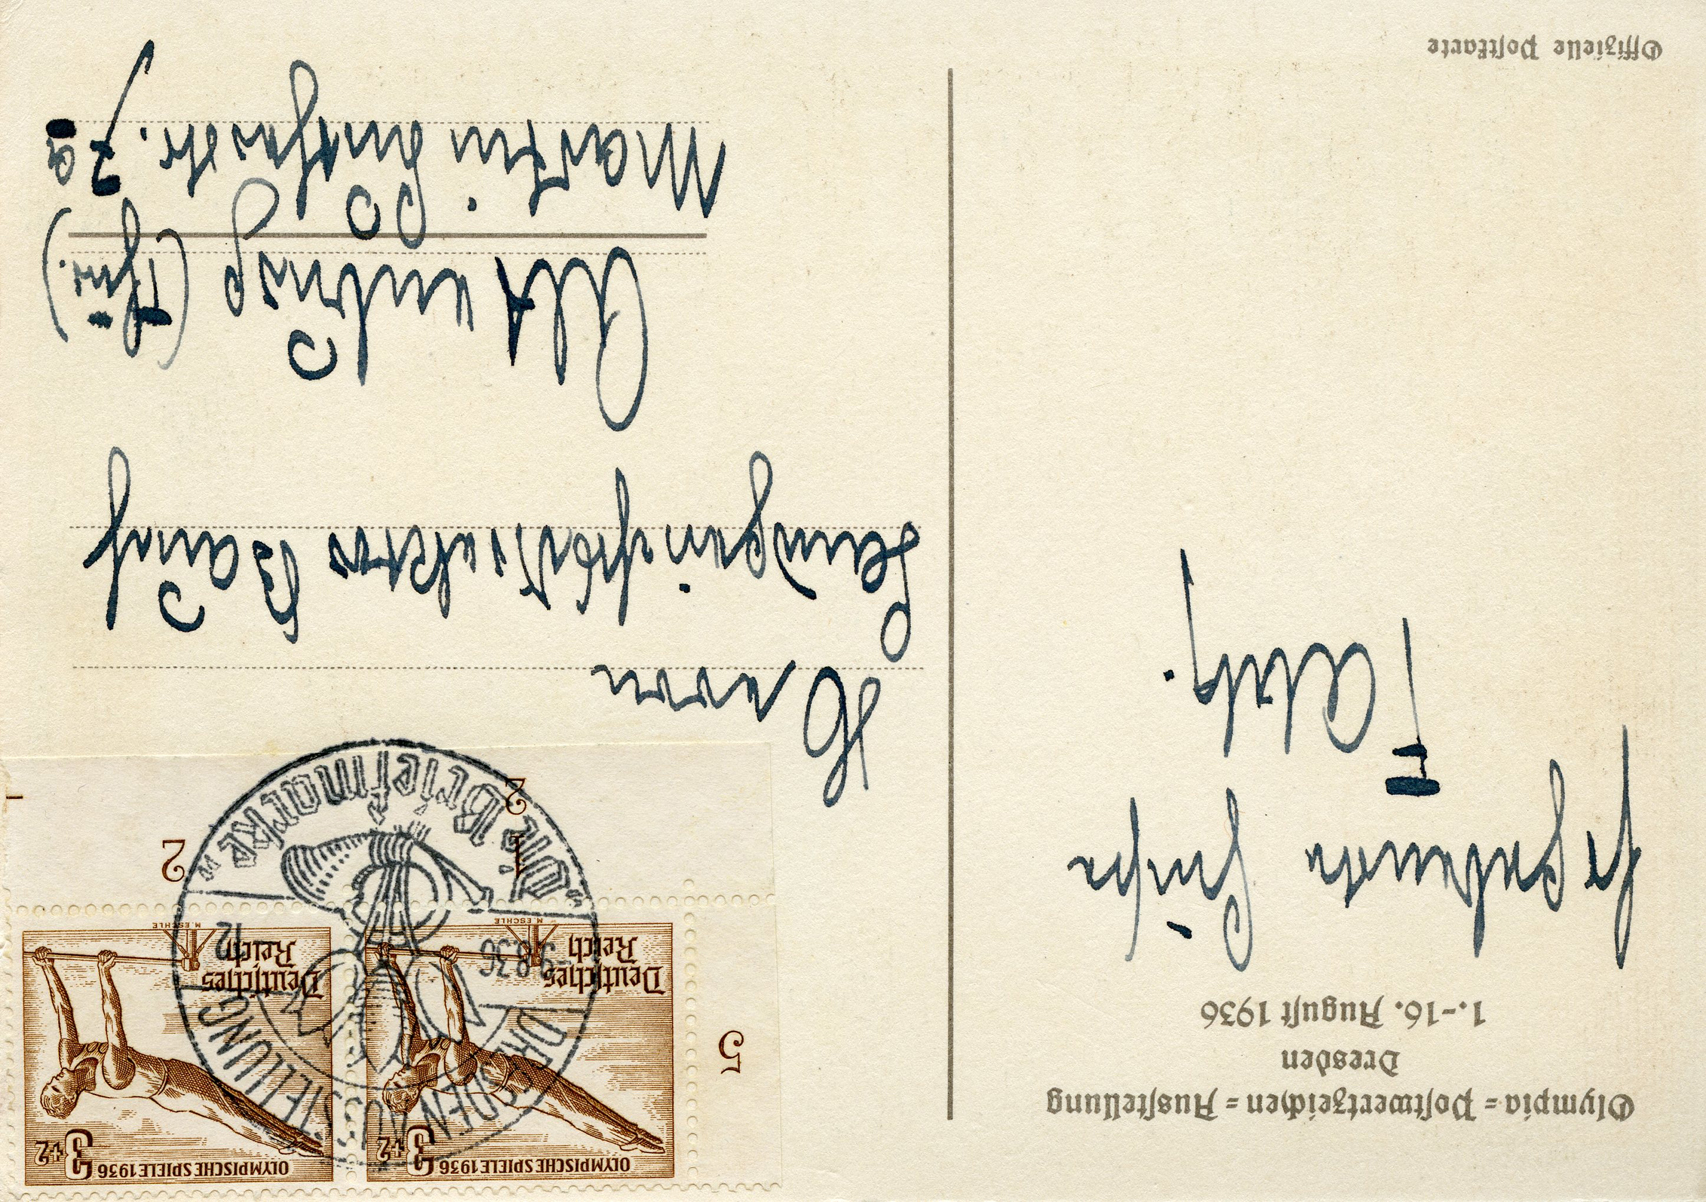 Olympia=Postwertzeichen=Ausstellung
Dresden
1.-16. August 1936
Grüße
Offizielle Postkarte
OLYMPISCHE SPIELE 1936
3+2
Deutsches
Reich
M. ESCHLE
OLYMPISCHE SPIELE 1936
3+2
Deutsches
Reich
M. ESCHLE
5
1
2
2
DRESDEN AUSSTELLUNG
-9.8.36 12
„Die Briefmarke“
Herrn
Landgerichtsdirektor Bauch
Altenburg (Thür.)
Martin Lutherstr. 7a